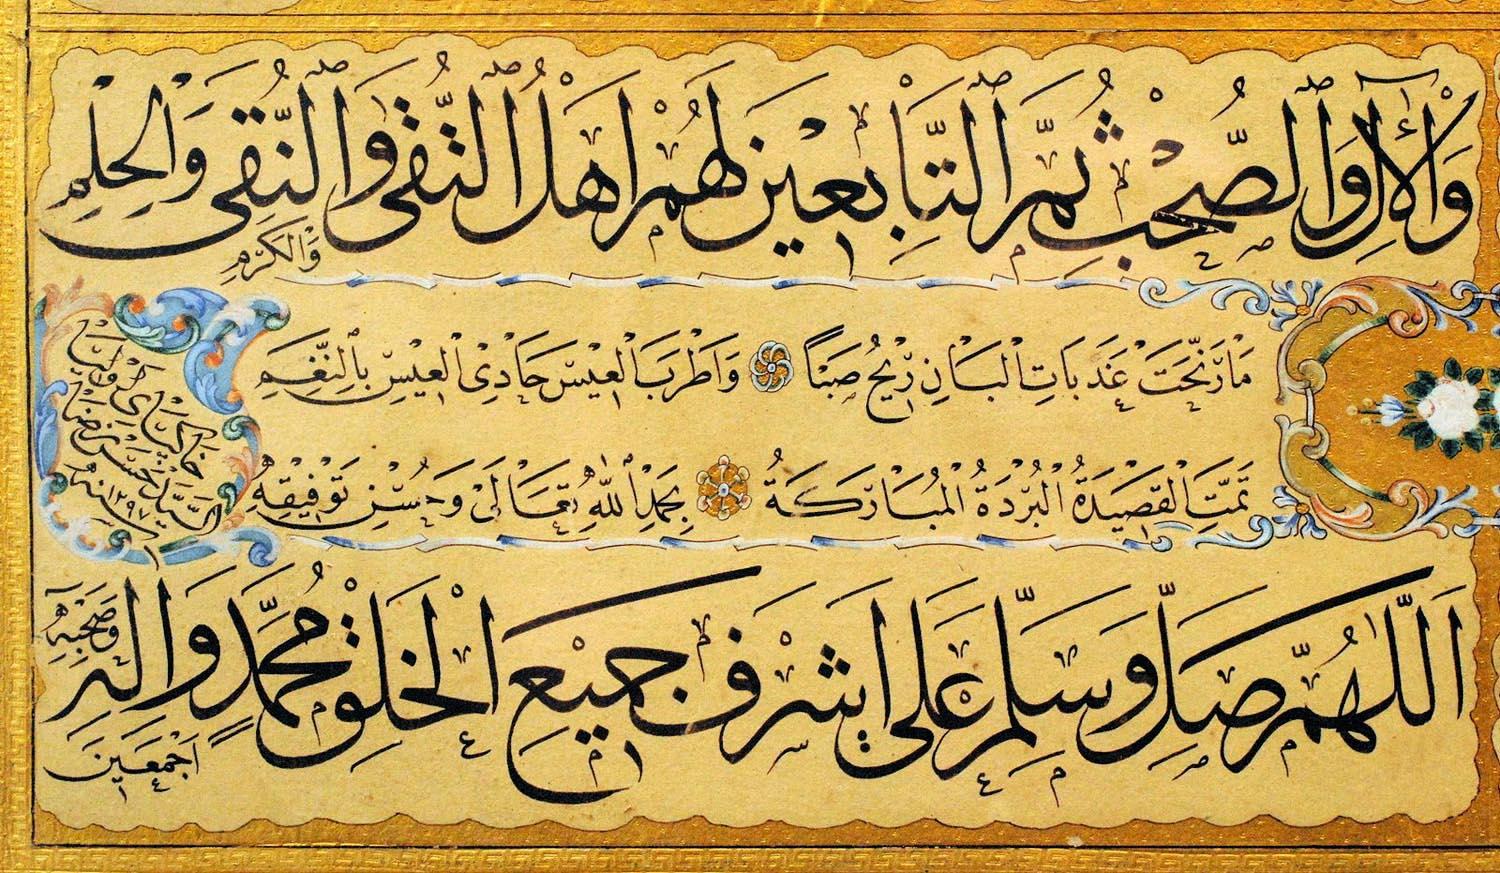 وَالْآلِ وَالصَّحْبِ ثُمَّ التَّابِعِينَ لَهُمْ اَهْلُ التُّقَى وَالنُّقَى وَالْحِلْمِ وَالْكَرَمِ
مَا رَنَّحَتْ عَذَبَاتِ الْبَانِ رِيحُ صَبًا وَاَطْرَبَ الْعِيسَ حَادِي الْعِيسِ بِالنَّغَمِ
تَمَّتِ الْقَصِيدَةُ الْبُرْدَةُ الْمُبَارَكَةُ بِحَمْدِ اللّٰهِ تَعَالَى وَحُسْنِ تَوْفِيقِهِ
خاكپاى اوليا
السيد حسن رضا
سنه ١٢٩٧
اَللّٰهُمَّ صَلِّ وَسَلِّمْ عَلَى اَشْرَفِ جَمِيعِ الْخَلْقِ مُحَمَّدٍ وَاٰلِهِ وَصَحْبِهِ اَجْمَعِينَ